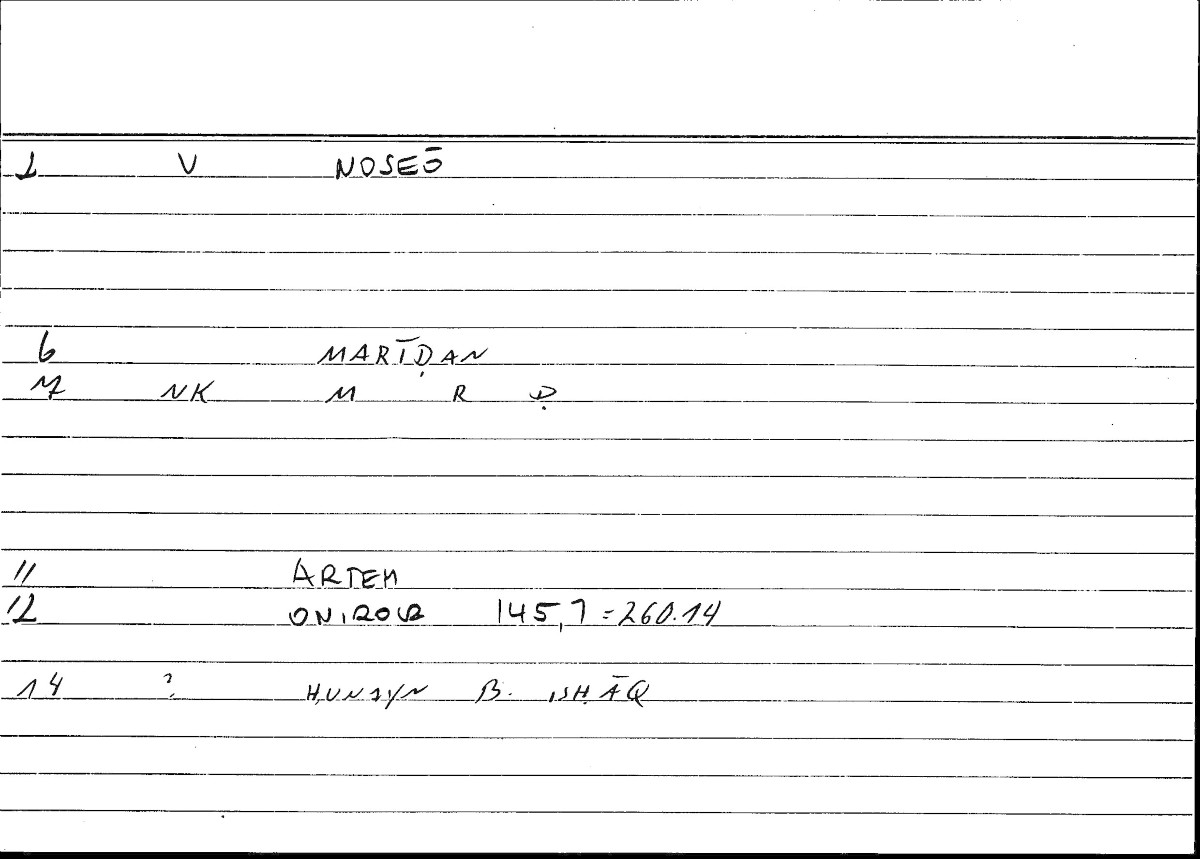 1 V NOSEŌ
6 MARĪḌAN
7 NK M R Ḍ
11 ARTEM
12 ONIROCR 145,7 = 260.14
14 ? ḤUNAYN B. ISḤĀQ